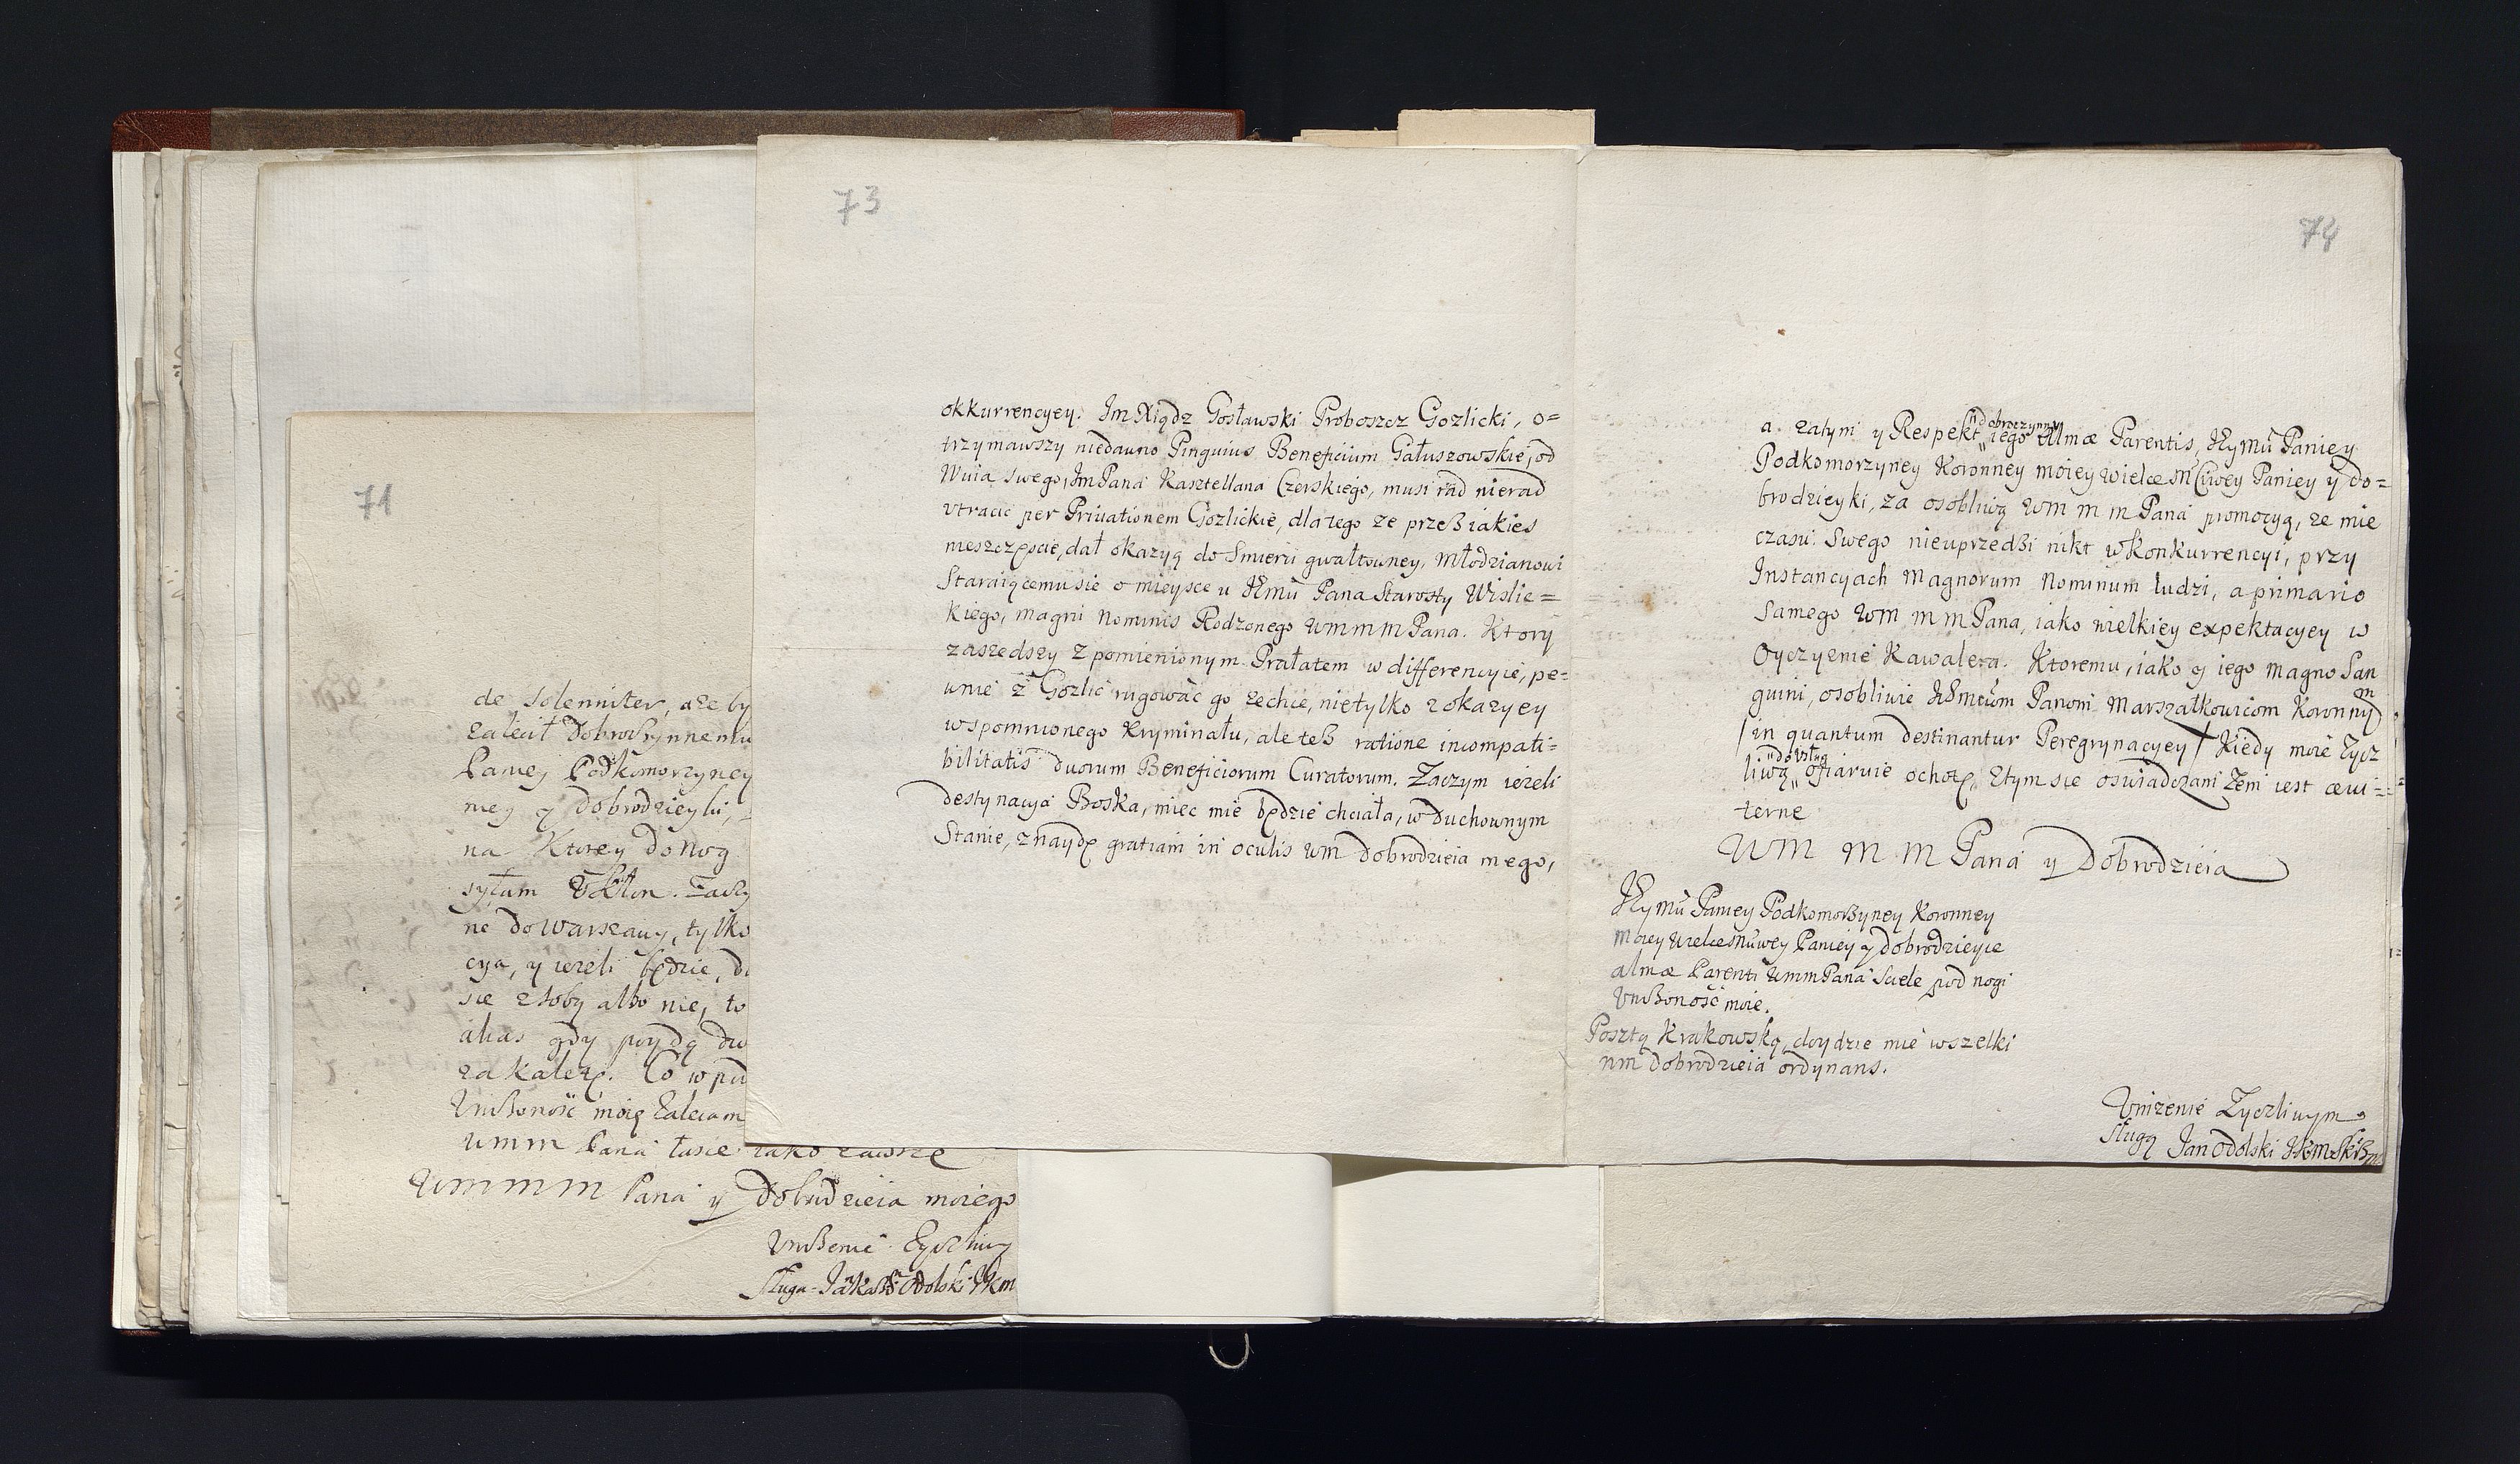 71
de solenniter, aze by
zalecił Dobroczynnemu
Paniey Podkomorzyney
mey y Dobrodzieyki,
na Ktorey do Nog
syłam Vkłon.
ne do Warszawy, tylko
cya, y iezeli będzie,
sie z sobą albo nie, to
alias gdy poydą
zakalezę. Co w
Vniżoność moię Zalecam
Wmm Pana łasce iako zawsze
Wm m m Pana y Dobrodzieia moiego
Vniżenie Zyczliwy
Sługa Odolski
73
okkurrencyey. Im Xiądz Gosławski Proboszcz Gozlicki, o=
trzymawszy niedawno Pinguius Beneficium Gałuszowskie, od
Wuia swego, Im Pana Kasztellana Czerskiego, musi rad nierad
vtracic per Priuationem Gozlickie, dlatego ze przeß iakies
nieszczęscie, dał okazyą do Smierci gwałtowney, Młodzianowi
Staraiącemusie o mieysce u Pana Starosty Wislic=
kiego, magni Nominis Rodzonego Wmmm Pana. Ktory
zaszedszy z pomienionym Prałatem w differencyie, pe=
wnie z Gozlic rugować go zechce, nietylko z okazyey
wspomnionego Kryminału, ale teß ratione incompati=
bilitatis duorum Beneficiorum Curatorum. Zaczym iezeli
destynacya Boska, miec mie będzie chciała, w Duchownym
Stanie, znaydę gratiam in oculis Wm Dobrodzieia mego,
74
a zatym y Respekt „dobroczynny iego Almæ Parentis, Paniey
Podkomorzyney Koronney moiey wielce Mciwey Paniey y do=
brodzieyki, za osobliwą Wm m m Pana promocyą, ze mie
czasu Swego nieuprzedzi nikt w Konkurrencyi, przy
Instancyach Magnorum Nominum ludzi, a primario
Samego Wm m m Pana, iako wielkiey expektacyey w
Oyczyznie Kawalera. Ktoremu, iako y iego magno San
guini, osobliwie Panom Marszałkowicom Koronnym
/in quantum destinantur Peregrynacyey/ Kiedy moie Zycz
liwą „do vsług„ ofiaruie ochotę, Ztym sie oswiadczam Zem iest æui=
terne
Wm m m Pana y Dobrodzieia
Paniey Podkomorzyney Koronney
moiey wielce Mciwey Paniey y dobrodzieyce
almæ Parenti Wmm Pana Sciele pod nogi
Vniżoność moie.
Posztą Krakowską, doydzie mie wszelki
Wm Dobrodzieia ordynans.
Vnizenie Zyczliwym
Sługą Jan Odolski